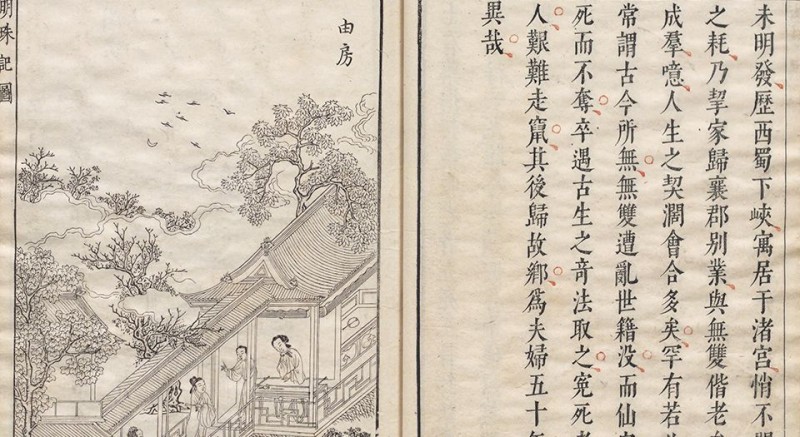 未明發歷西蜀下峽寓居于渚宮悄不
之耗乃挈家歸襄郡別業與無雙偕老
成羣噫人生之契濶會合多矣罕有若
常謂古今所無無雙遭亂世籍没而仙
死而不奪卒遇古生之竒法取之寃死
人艱難走竄其後歸故鄉爲夫婦五十年
異哉
由房
明珠記圖